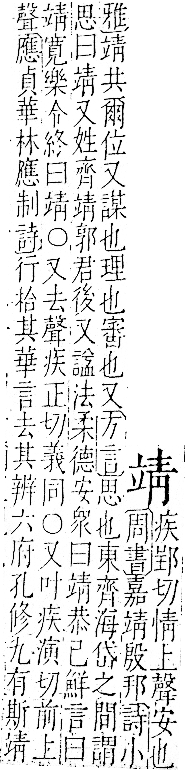 靖
疾郢切情上聲安也
周書嘉靖殷邦詩小
雅靖共爾位又謀也理也審也又方言思也東齊海岱之間謂
思曰靖又姓齊靖郭君後又諡法柔德安衆曰靖恭己鮮言曰
靖寛樂令終曰靖○又去聲疾正切義同○又叶疾演切前上
聲應貞華林應制詩行捨其華言去其辨六府孔修九有斯靖